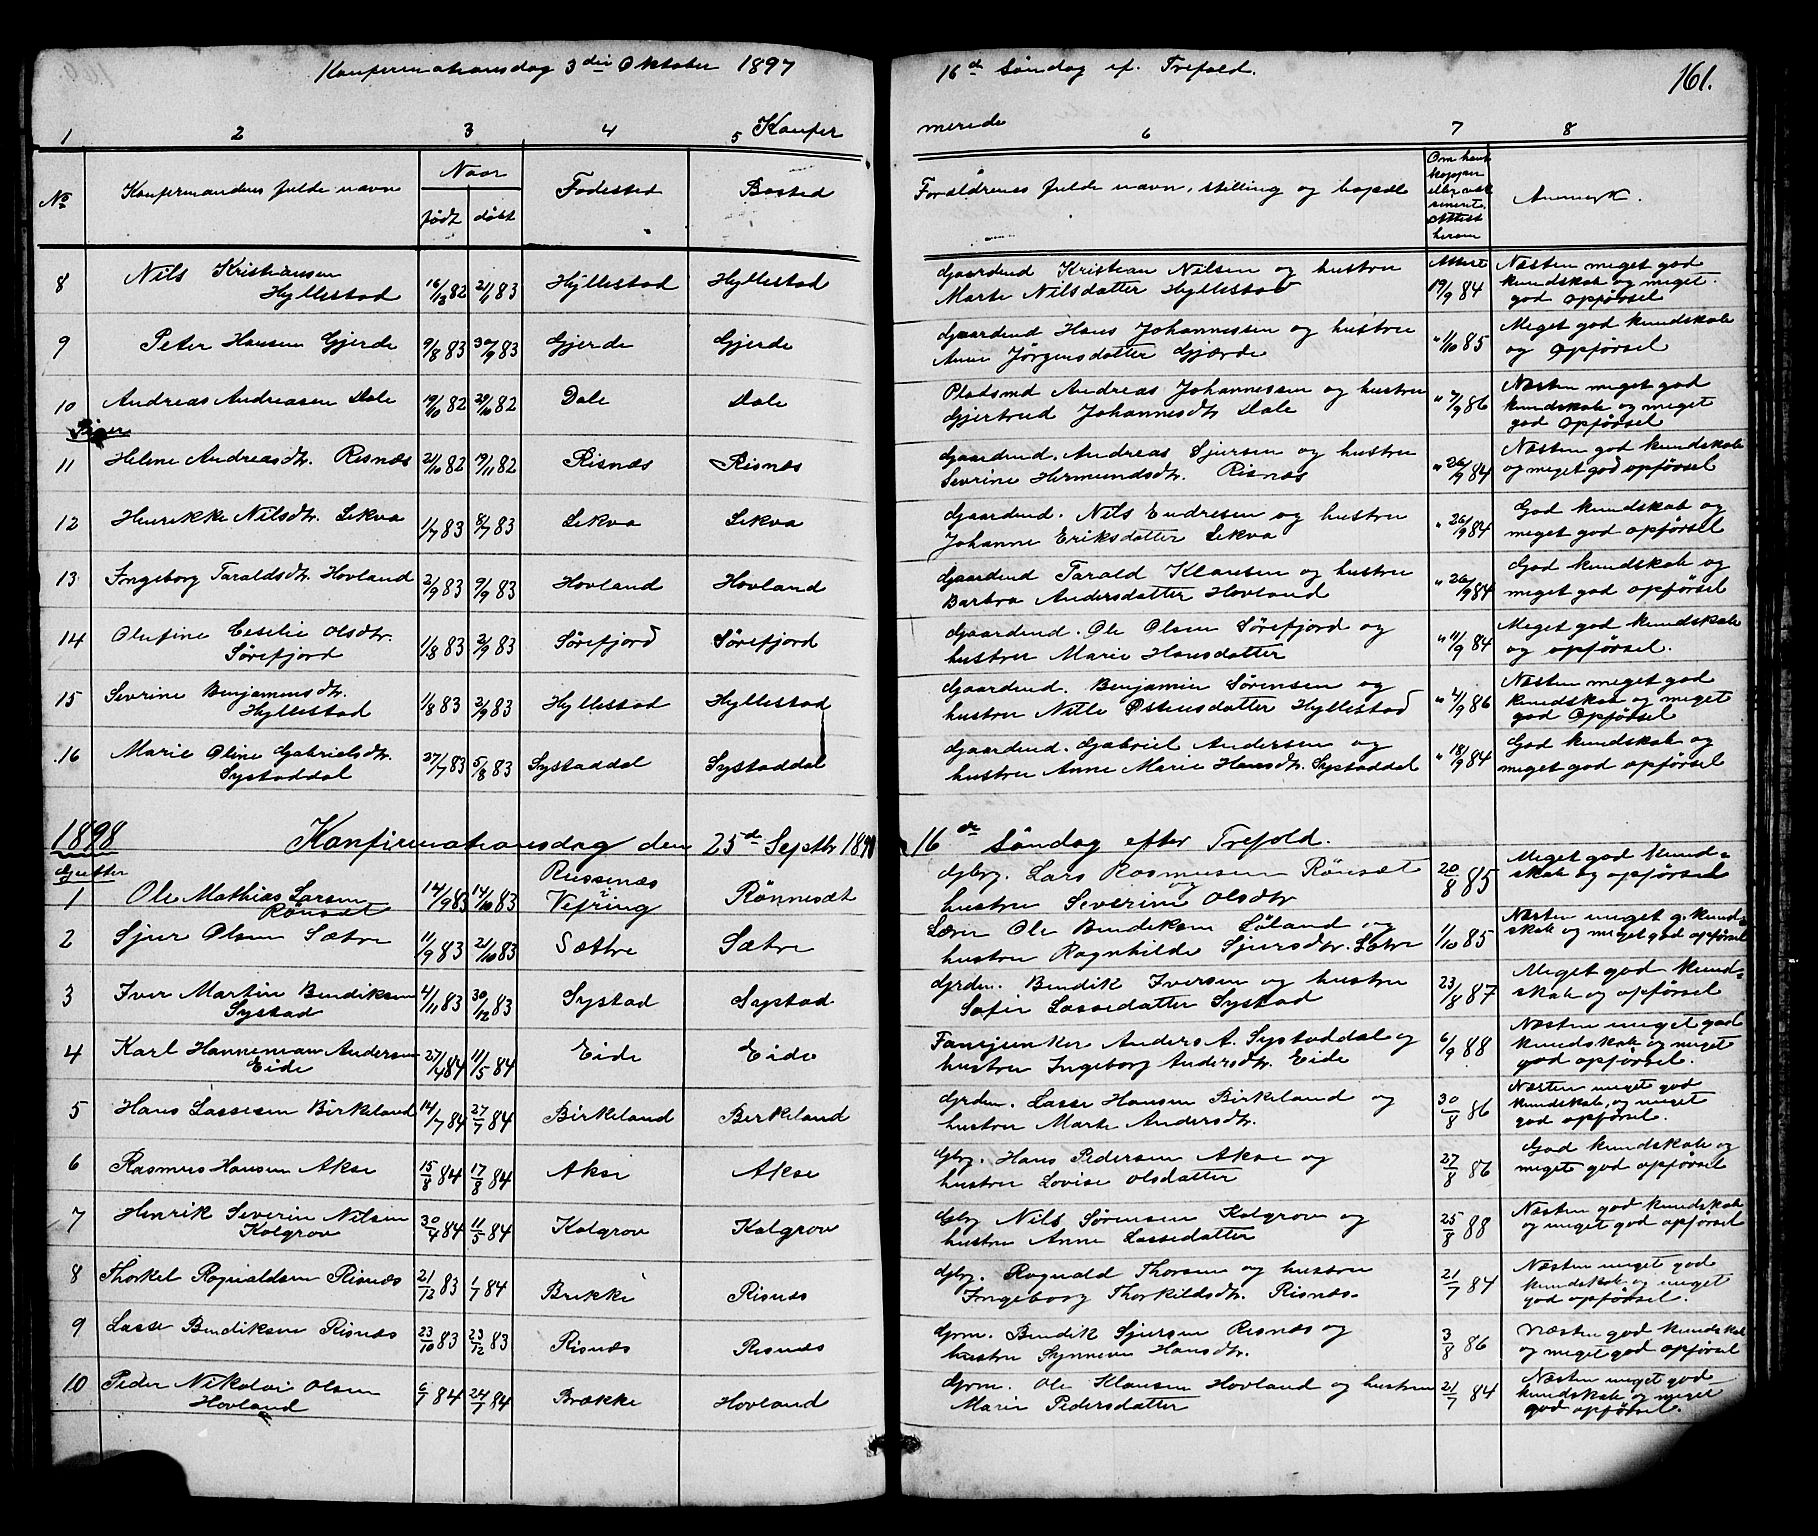 Konfirmationsdag 3die Oktober 1897 16d Søndag ef. Trefold. 161.
1 2 3 4 5 Konfirmerede 6 7 8
No Konfirmandens fulde navn Naar født døbt Fødested Bosted Forældrenes fulde navn, stilling og bopæl Om havt kopper eller vaksineret. Attest herom Anmerk.
8 Nils Kristiansen Hyllestad 16/12 82 21/1 83 Hyllestad Hyllestad Gaardmd Kristian Nilsen og hustru Marte Nilsdatter Hyllestad Attest 19/9 84 Næsten meget god kundskab og meget god opførsel
9 Peter Hansen Gjerde 9/8 83 30/9 83 Gjerde Gjerde Gaardmd Hans Johannessen og hustru Anne Jørgensdatter Gjærde " 1/10 85 Meget god kundskab og opførsel
10 Andreas Andreasen Dale 19/10 82 29/10 82 Dale Dale Pladsmd Andreas Johannessen og hustru Gjertrud Johannesdtr Dale " 7/9 86 Næsten meget god kundskab og meget god opførsel
Piger
11 Helene Andreasdtr. Risnæs 21/10 82 19/11 82 Risnæs Risnæs Gaardmd. Andreas Sjursen og hustru Sevrine Hermundsdtr. Risnæs " 26/9 84 Næsten god kundskab og meget god opførsel
12 Henrikke Nilsdtr. Lekva 1/7 83 8/7 83 Lekva Lekva Gaardmd. Nils Endresen og hustru Johanne Eriksdatter Lekva " 26/9 84 God kundskab og meget god opførsel
13 Ingeborg Taraldsdtr Hovland 2/9 83 9/9 83 Hovland Hovland Gaardmd Tarald Klausen og hustru Barbra Andersdatter Hovland " 26/9 84 God kundskab og meget god opførsel
14 Olufine Cesilie Olsdtr. Sørefjord 1/8 83 2/9 83 Sørefjord Sørefjord Gaardmd. Ole Olsen Sørefjord og hustru Marie Hansdatter " 11/9 84 Meget god kundskab og opførsel.
15 Sevrine Benjaminsdtr. Hyllestad 1/8 83 2/9 83 Hyllestad Hyllestad Gaardmd. Benjamin Sørensen og hustru Nille Østensdatter Hyllestad " 4/9 86 Næsten meget god kundskab og meget god Opførsel
16 Marie Oline Gabrielsdtr. Systaddal 27/7 83 5/8 83 Systaddal Systaddal Gaardmd. Gabriel Andersen og hustru Anne Marie Hansdtr. Systaddal " 18/9 84 God kundskab og meget god opførsel
1898 Konfirmationsdag den 25d Septbr 1898 16de Søndag efter Trefold.
Gutter
1 Ole Mathias Larsen Rönset 14/9 83 14/10 83 Russenæs i Vefring Rönnesæt Gbrg. Lars Rasmusen Rönsæt og hustru Severine Olsdtr 20/8 85 Meget god kundskab og opførsel
2 Sjur Olsen Sætre 11/9 83 21/10 83 Sættre Sætre Lærer Ole Bendiksen Løland og hustru Ragnhilde Sjursdtr. Sætre 1/10 85 Næsten meget g. kundskab og meget god opførsel
3 Iver Martin Bendiksen Systad 4/11 83 30/12 83 Systad Systad Grdm. Bendik Iversen og hustru Sofie Lassedatter Systad 23/8 87 Meget god kundskab og opførsel
4 Karl Hanneman Andersen Eide 27/4 84 11/5 84 Eide Eide Fanejunker Anders A. Systaddal og hustru Ingeborg Andersdtr. Eide 6/9 88 Næsten meget god kundskab og meget god opførsel.
5 Hans Lassesen Birkeland 14/7 84 27/7 84 Birkeland Birkeland Grdm. Lasse Hansen Birkeland og hustru Marte Andersdtr. 30/8 86 Næsten meget god kundskab, og meget god opførsel.
6 Rasmus Hansen Akse 15/8 84 17/8 84 Akse Akse Gbrg. Hans Pedersen Akse og hustru Lovise Olsdatter 27/8 86 God kundskab og meget god opførsel
7 Henrik Severin Nilsen Kolgrov 30/4 84 11/5 84 Kolgrov Kolgrov Gbrg Nils Sørensen Kolgrov og hustru Anne Lassedatter 25/8 88 Næsten god kundskab og meget god opførsel
8 Thorkel Ragnaldsen Risnæs 21/12 83 1/7 84 Brekke Risnæs Gbrg. Ragnald Thorsen og hustru Ingeborg Thorkildsdtr. Risnæs. 21/7 84 Næsten meget god kundskab og meget god opførsel.
9 Lasse Bendiksen Risnæs 23/10 83 23/12 83 Risnæs Risnæs Grm. Bendik Sjursen Risnæs og hustru Synneve Hansdtr. 3/8 86 Næsten god kundskab og meget god opførsel
10 Peder Nikolai Olsen Hovland 6/7 84 24/7 84 Brække Hovland Grm. Ole Klausen Hovland og hustru Marie Pedersdatter 21/7 84 Næsten meget god kundskab og meget god opførsel.